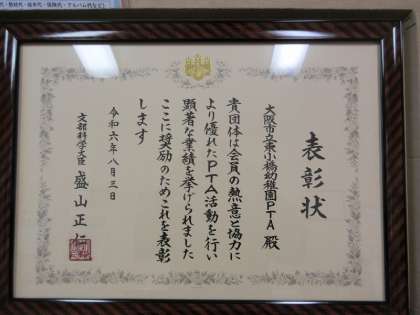 表彰状
大阪市立東小橋幼稚園PTA 殿
貴団体は会員の熱意と協力に
より優れたPTA活動を行い
顕著な業績を挙げられました
ここに奨励のためこれを表彰
します
令和六年八月三日
文部科学大臣 盛山正仁